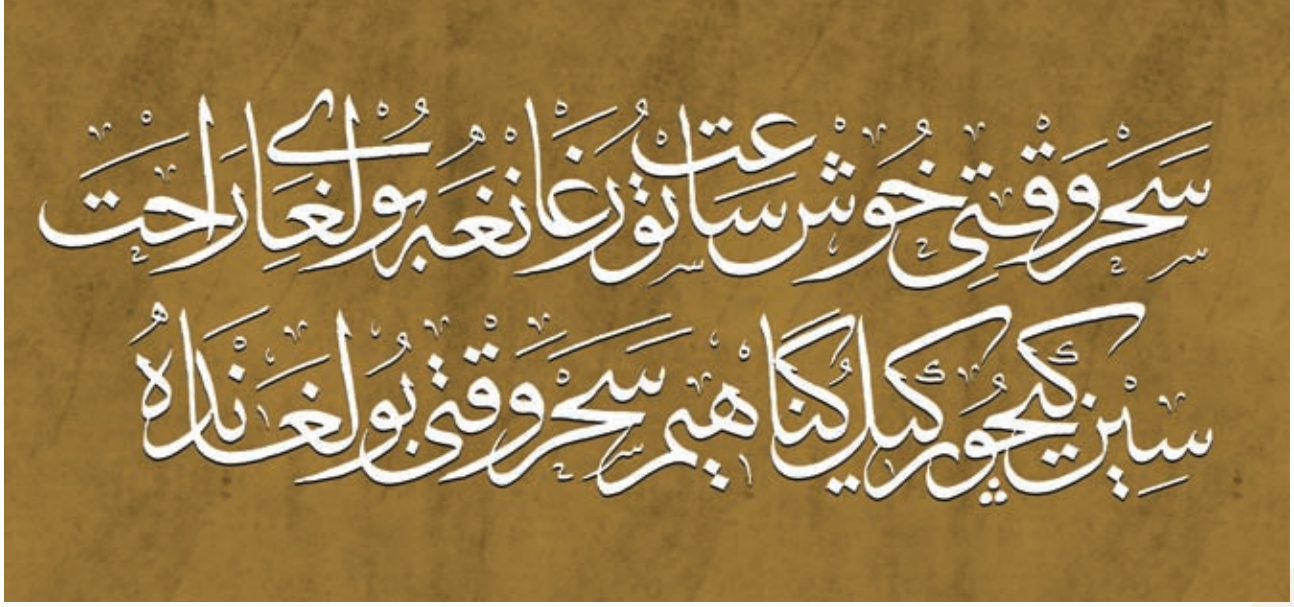 سحر وقتی خوش ساعت تورغانغه بولغای راحت
سین کیچورکیل کناهیم سحر وقتی بولغانده